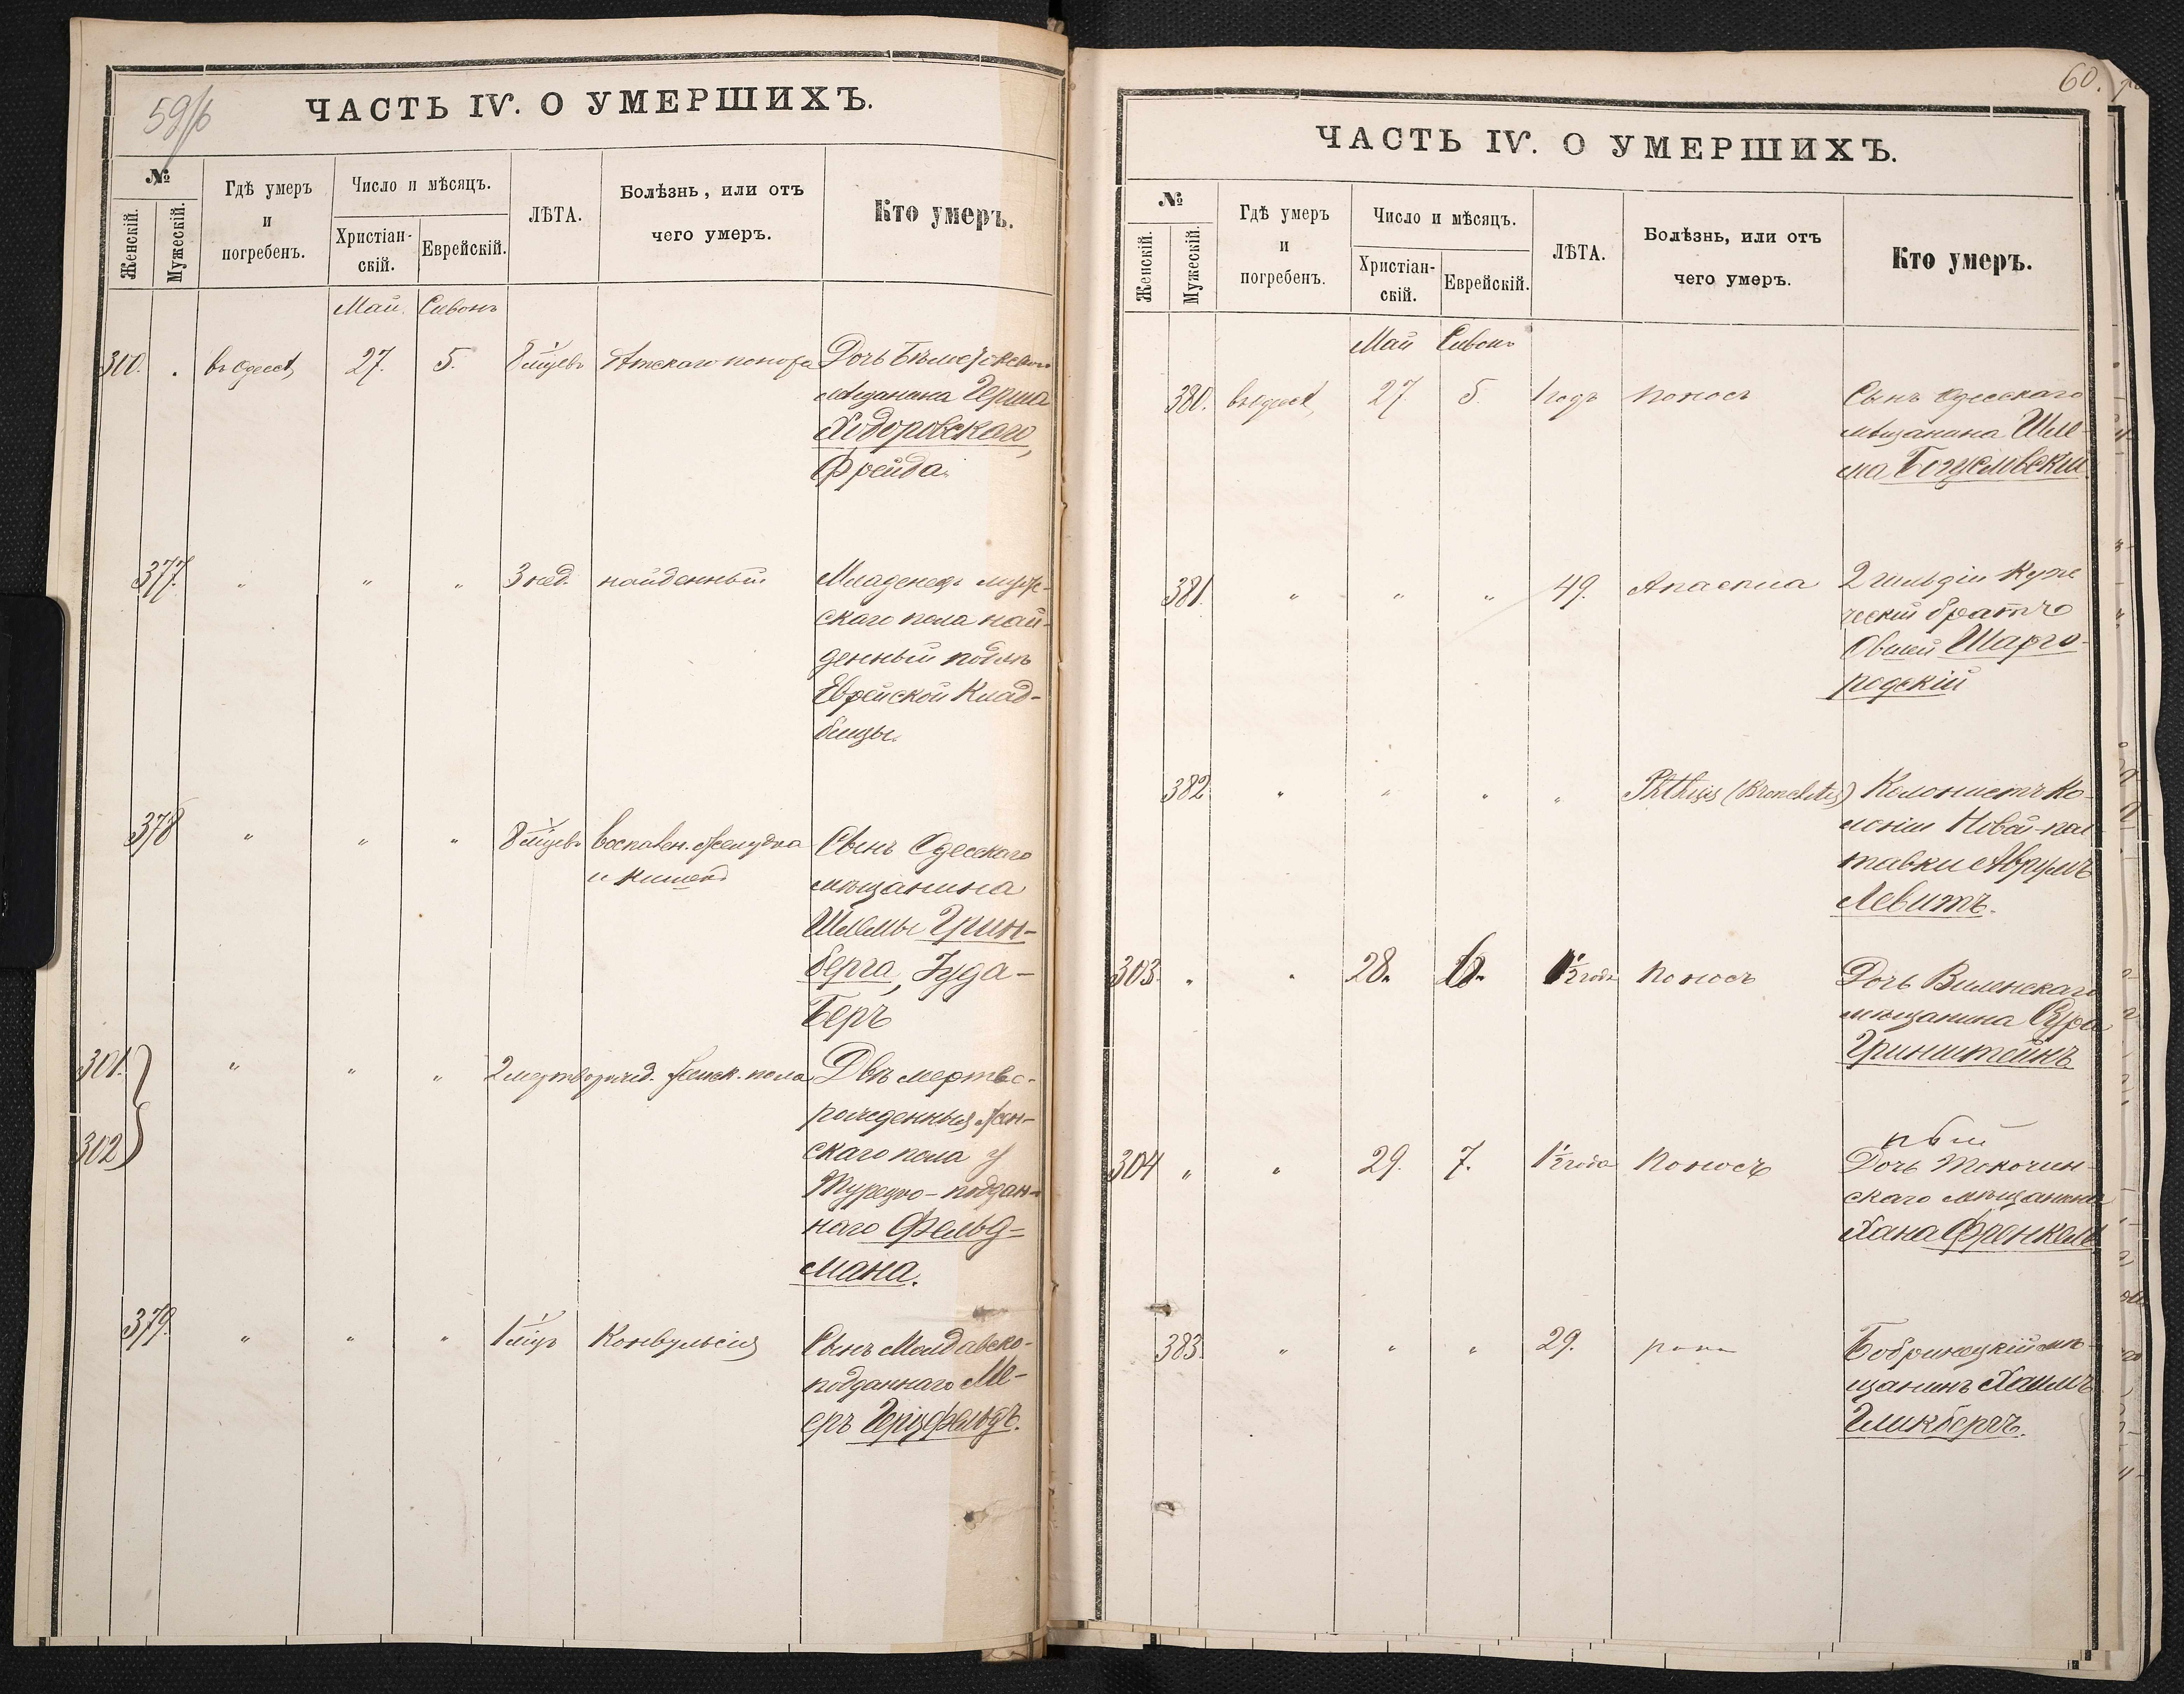 59/б
ЧАСТЬ IV. О УМЕРШИХЪ.
№
Женскій.
Мужескій.
Гдѣ умеръ
и
погребенъ.
Число и мѣсяцъ.
Христіан-
скій.
Еврейскій.
ЛѢТА.
Болѣзнь, или отъ
чего умеръ.
Кто умеръ.
Май. Сивонъ
300. въ Одессѣ 27. 5. 8 мцевъ Дочь
мѣщанина Герша
Ходоровскаго,
Фрейда.
377. " " " 3 нед. найденный Младенецъ муже-
скаго пола най-
денный подлѣ
Еврейской Клад-
бищы.
378 " " " 8 мцевъ воспален. желудка Сынъ Одесскаго
и кишекъ мѣщанина
Шлемы Грин-
берга, Іуда-
Беръ
301. " " " 2 мертворожд. женск. пола Двѣ мертво-
302 рожденныя жен-
скаго пола у
Турецко-поддан-
наго Фельд-
мана.
379. " " " 1 мцъ Конвульсія Сынъ Молдавско-
подданнаго Ме-
еръ Герцфельдъ.
60.
ЧАСТЬ IV. О УМЕРШИХЪ.
№
Женскій.
Мужескій.
Гдѣ умеръ
и
погребенъ.
Число и мѣсяцъ.
Христіан-
скій.
Еврейскій.
ЛѢТА.
Болѣзнь, или отъ
чего умеръ.
Кто умеръ.
Май Сивонъ
380. въ Одессѣ 27 5 1 годъ поносъ Сынъ Одесскаго
мѣщанина Шле-
ма
381. " " " 49. 2 гильдіи Купе
ческій братъ
Овшей Шарго-
родскій
382 " " " " Phthisis (Bronchitis) Колонистъ Ко-
лоніи Новой-пол-
тавки Аврумъ
Левитъ.
303. " " 28. 1½ года Поносъ Дочь Виленскаго
мѣщанина Сура
Гринштейнъ
304 " " 29. 7. 1½ года Поносъ Дочь Токочин-
скаго мѣщанина
Хана Френкель
383. " " " 29. Бобринецкій мѣ-
щанинъ Хаимъ
Гликбергъ.